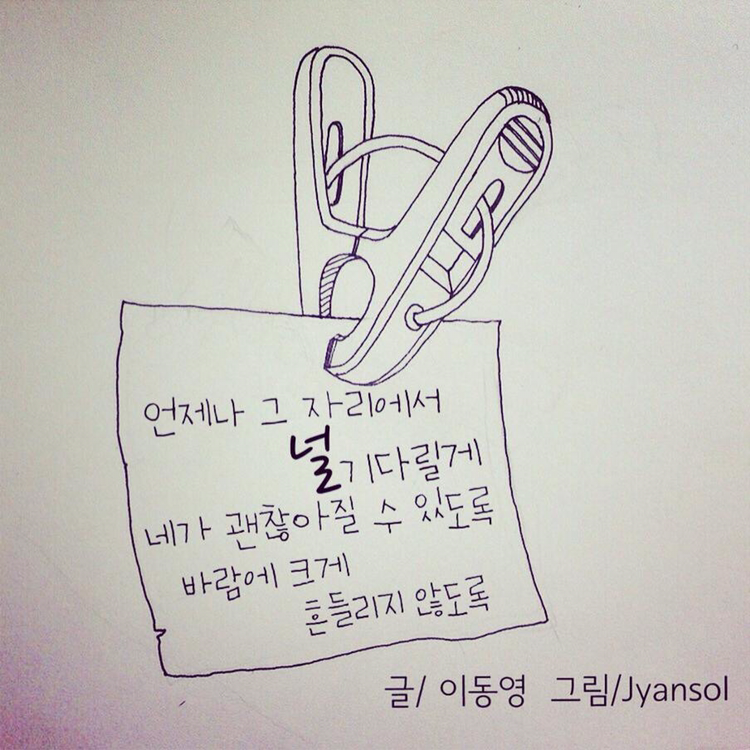 언제나 그 자리에서
널 기다릴게
네가 괜찮아질 수 있도록
바람에 크게
흔들리지 않도록
글/ 이동영 그림/Jyansol